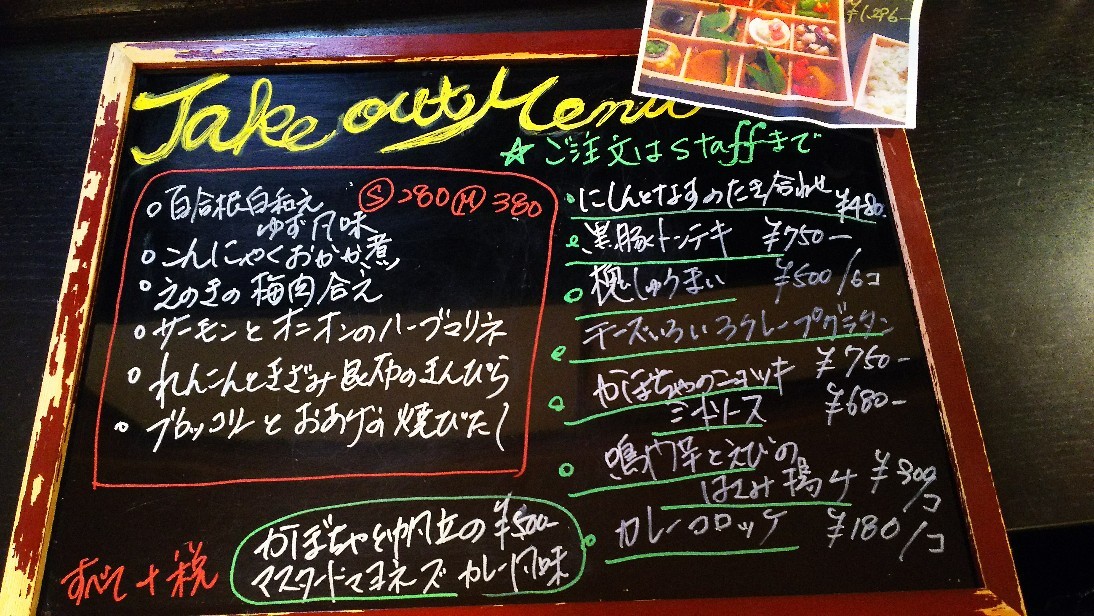 Take out Menu
¥1,296-
☆ご注文はstaffまで
○百合根白和え Ⓢ280 Ⓜ380
ゆず風味
○こんにゃくおかか煮
○えのきの梅肉合え
○サーモンとオニオンのハーブマリネ
○れんこんときざみ昆布のきんぴら
○ブロッコリーとおあげの焼びたし
○にしんとなすのたき合わせ
¥480-
○黒豚トンテキ ¥750-
○しゅうまい ¥500/6コ
○チーズいろいろクレープグラタン
¥750-
○かぼちゃのニョッキ
ミートソース ¥680-
○鳴門芋とえびの
はさみ揚げ ¥300/コ
○カレーコロッケ ¥180/コ
かぼちゃと帆立の ¥500-
マスタードマヨネーズ カレー風味
すべて+税